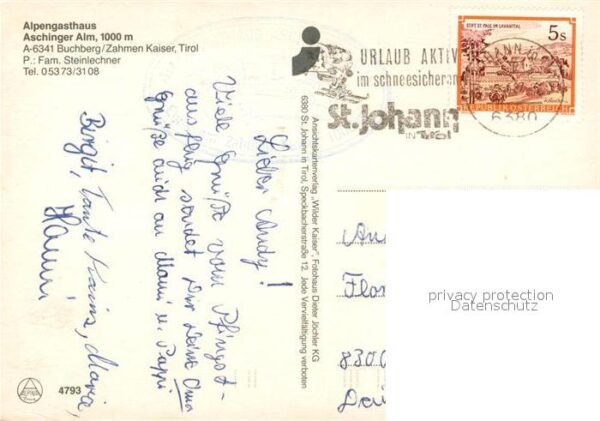 Alpengasthaus
Aschinger Alm, 1000 m
A-6341 Buchberg/Zahmen Kaiser, Tirol
P.: Fam. Steinlechner
Tel. 05373/3108
URLAUB AKTIV
im schneesicheren
St. Johann
IN Tirol
6380
STIFT ST. PAUL IM LAVANTTAL
5 S
REPUBLIK ÖSTERREICH
Lieber Andy!
Viele Grüße vom Pfingst-
ausflug sendet Dir Deine Oma
Grüße auch an Mami u. Pappi
Birgit, Tante Maria,
Hanni
Ansichtskartenverlag „Wilder Kaiser", Fotohaus Dieter Jöchler KG
6380 St. Johann in Tirol, Speckbacherstraße 12. Jede Vervielfältigung verboten
An
Flor
8300
privacy protection
Datenschutz
ALPINA
4793